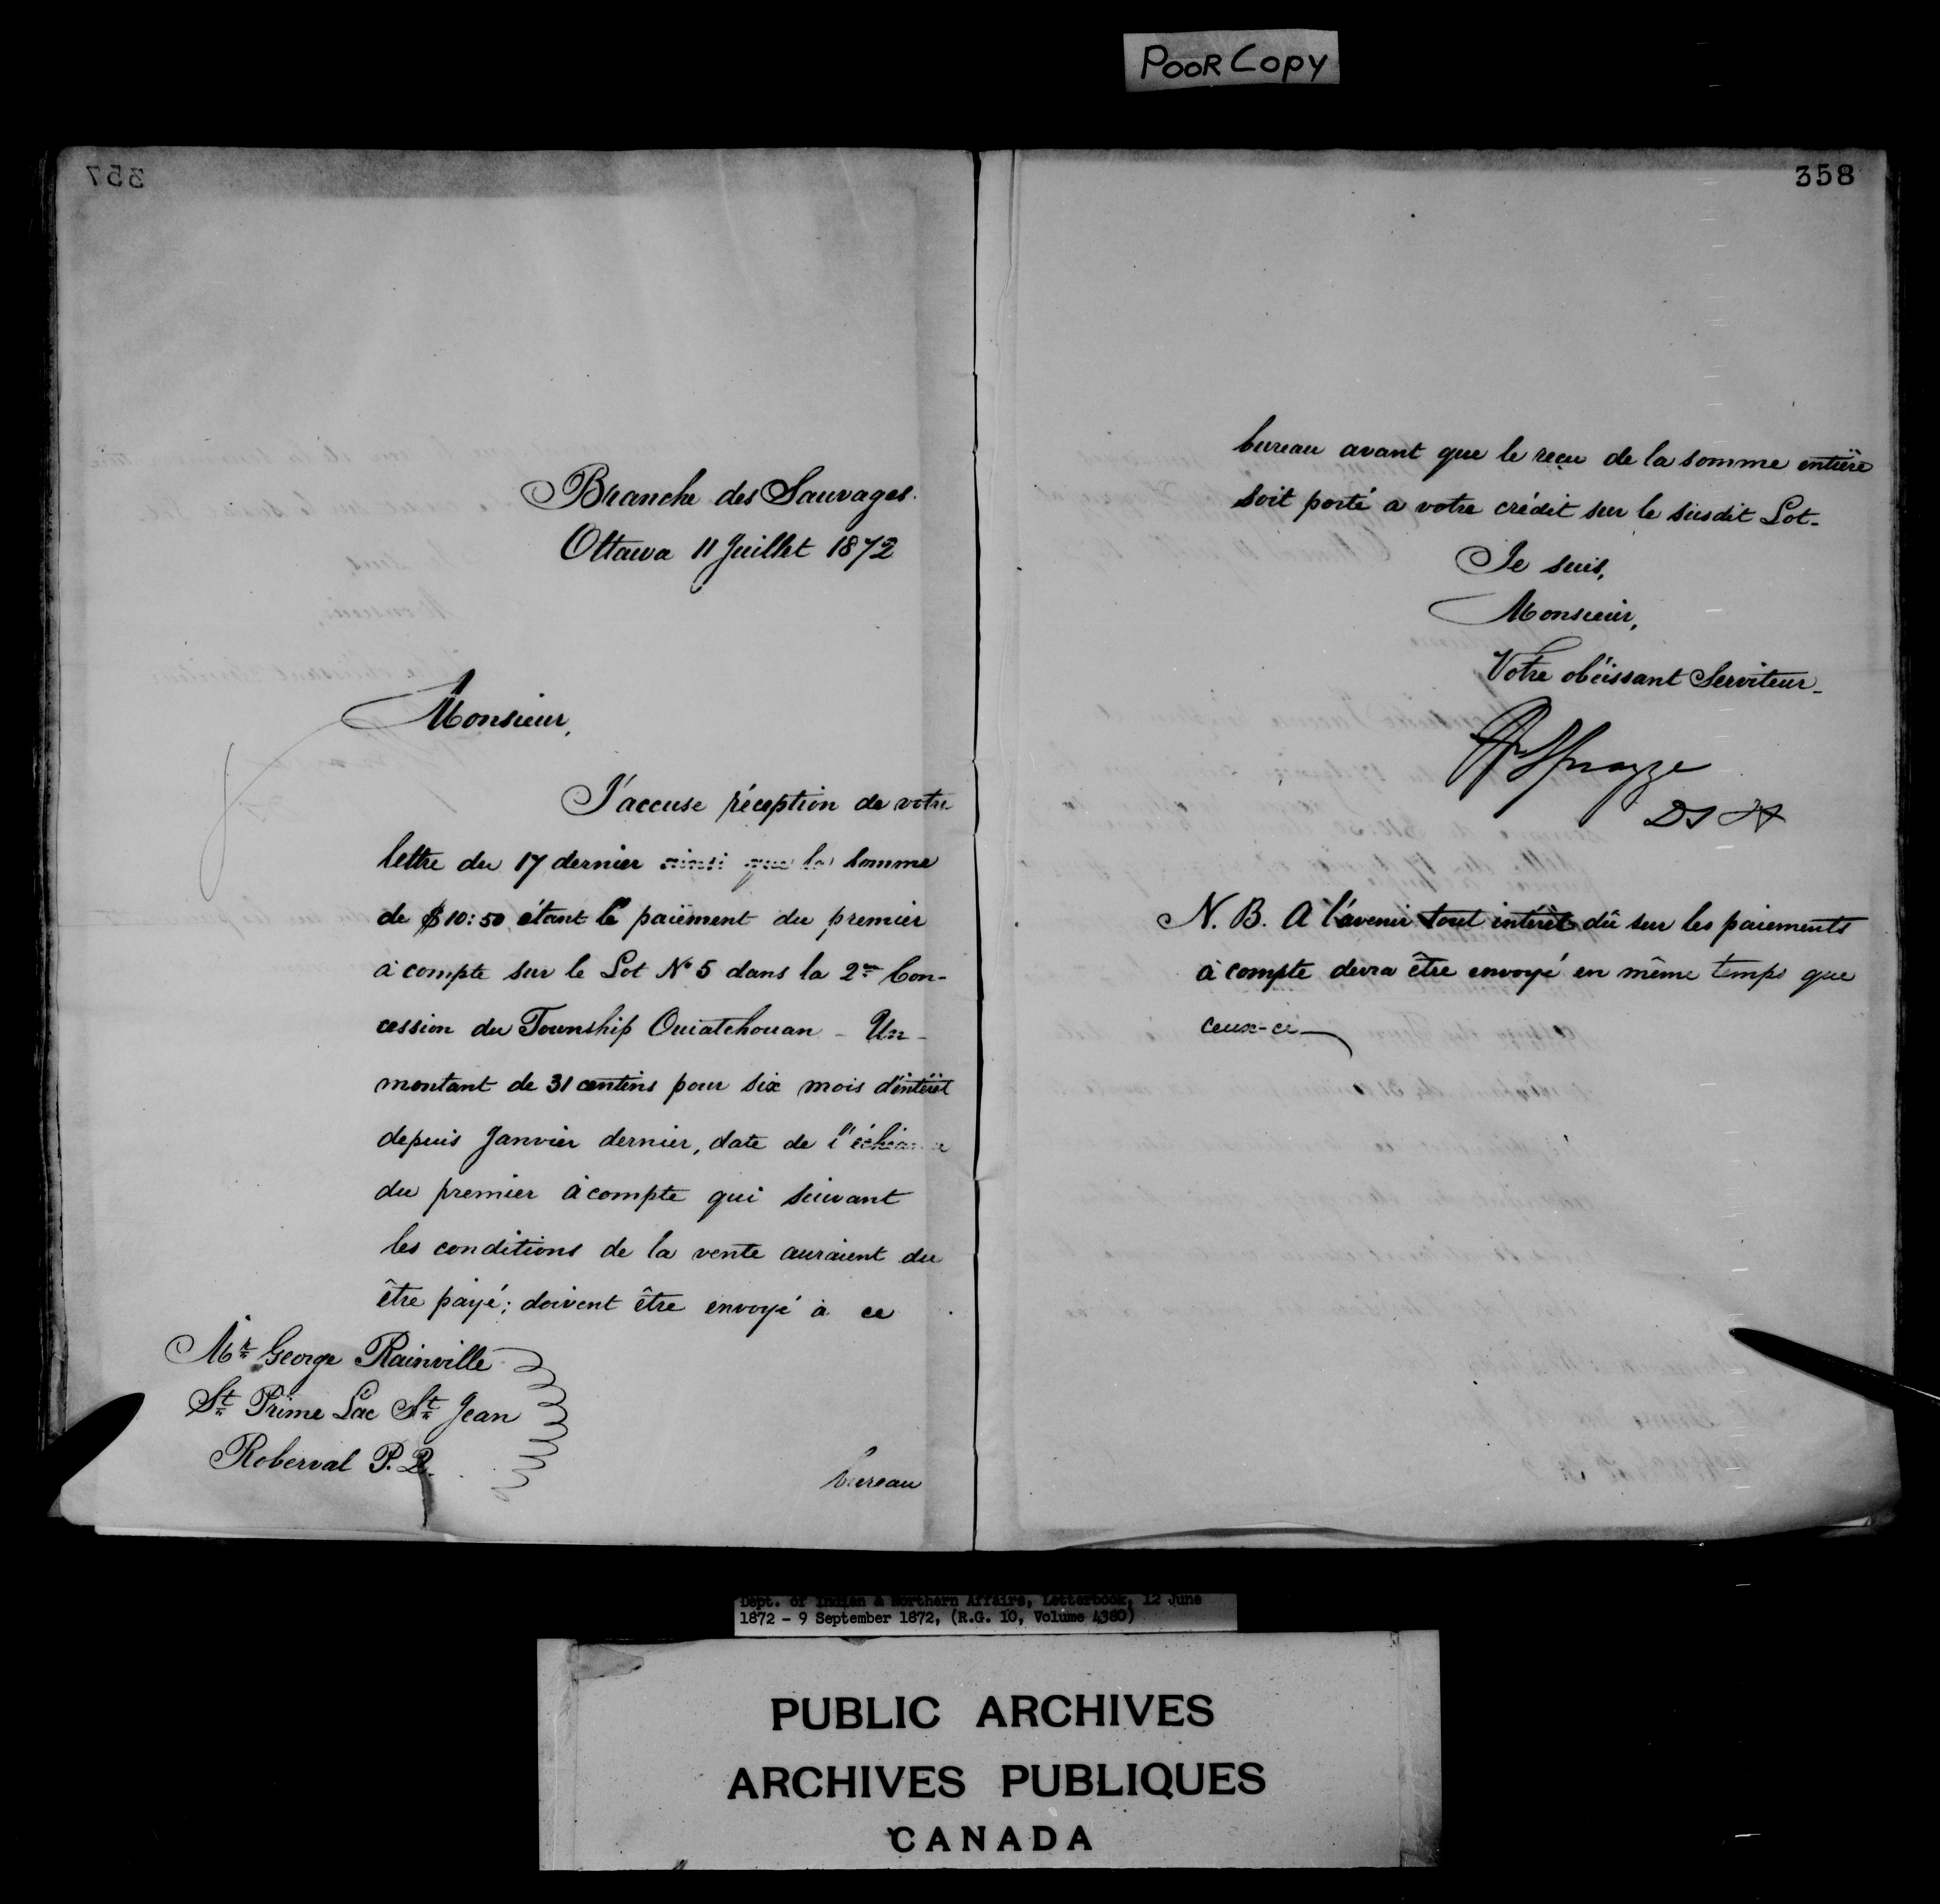 POOR COPY
357
Branche des Sauvages.
Ottawa 11 Juillet 1872
Monsieur,
J'accuse réception de votre
lettre du 17 dernier ainsi que la somme
de $10:50 étant le paiement du premier
à compte sur le Lot No 5 dans la 2me Con-
cession du Township Ouiatchouan - Un-
montant de 31 centins pour six mois d'intérêt
depuis Janvier dernier, date de l'échéance
du premier àcompte qui suivant
les conditions de la vente auraient du
être payé; doivent être envoyé à ce
Mr George Rainville
St Prime Lac St Jean
Roberval P.Q.
bureau
358
bureau avant que le reçu de la somme entière
soit porté a votre crédit sur le susdit Lot-
Je suis,
Monsieur,
Votre obéissant Serviteur-
Spragge
DS
N.B. A l'avenir tout intérêt dû sur les paiements
à compte devra être envoyé en même temps que
ceux-ci
Dept. of Indian & Northern Affairs, Letterbook, 12 June
1872 - 9 September 1872, (R.G. 10, Volume 4380)
PUBLIC ARCHIVES
ARCHIVES PUBLIQUES
CANADA